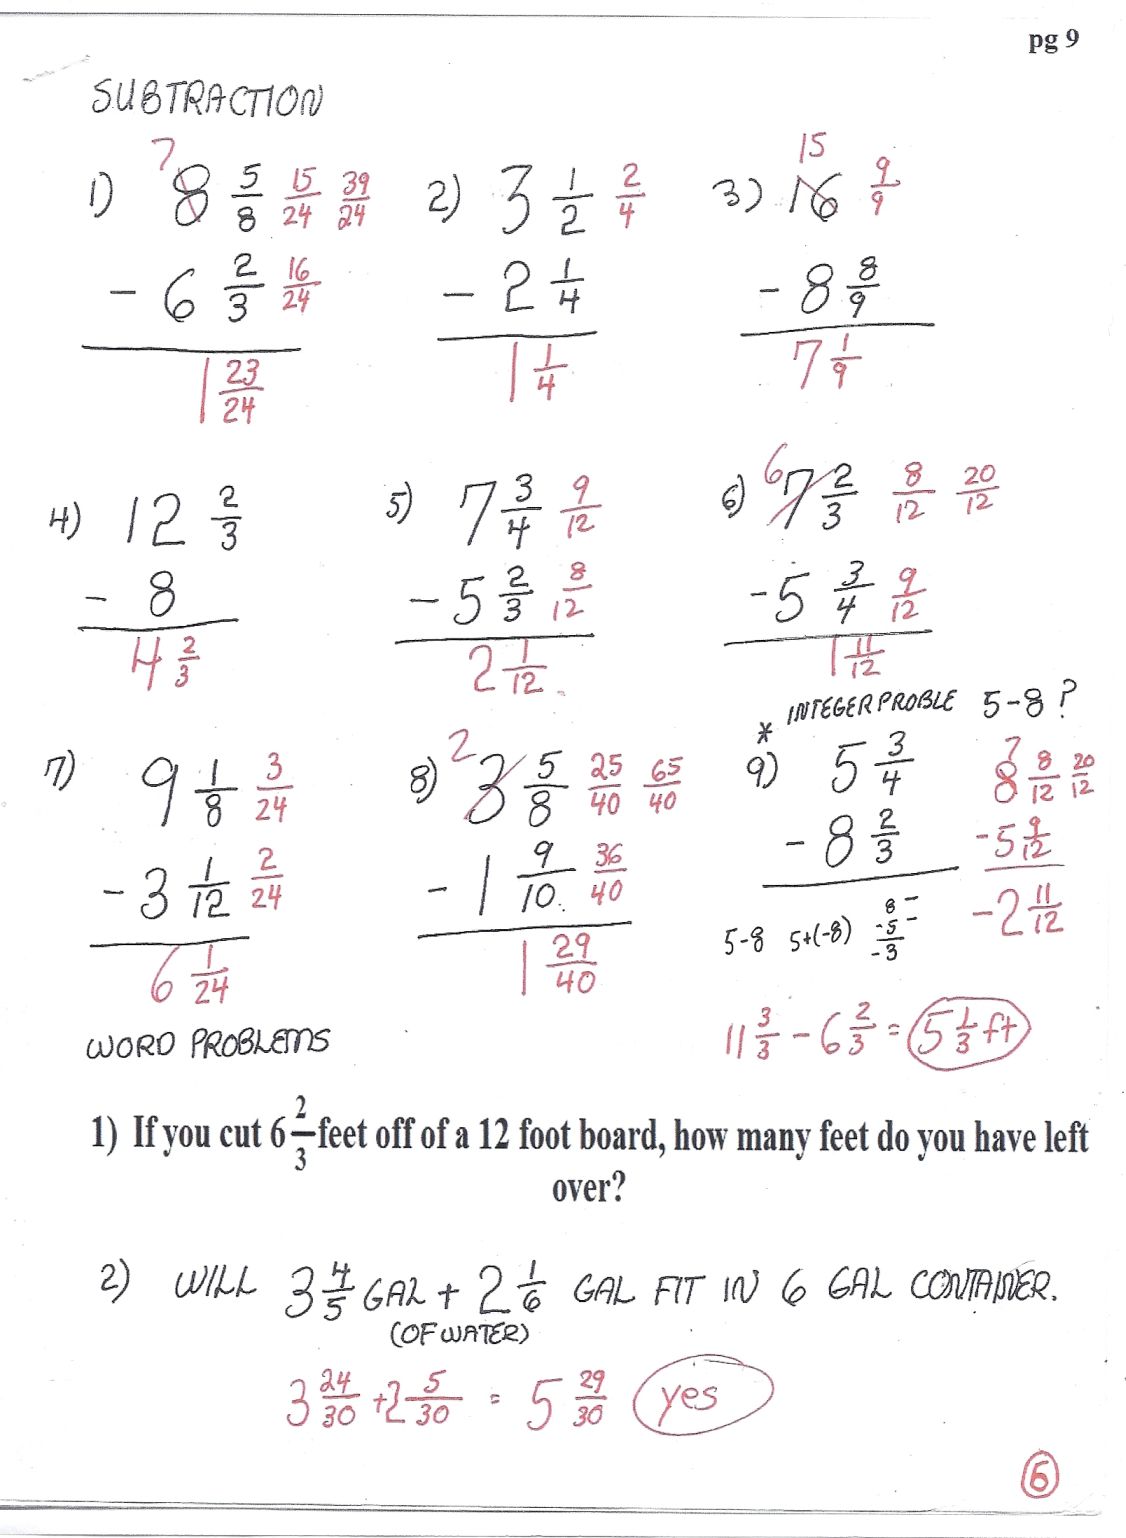 pg 9
SUBTRACTION
1) 7 8 5/8 15/24 39/24
- 6 2/3 16/24
1 23/24
2) 3 1/2 2/4
- 2 1/4
1 1/4
3) 15 16 9/9
- 8 8/9
7 1/9
4) 12 2/3
- 8
4 2/3
5) 7 3/4 9/12
- 5 2/3 8/12
2 1/12
6) 6 7 2/3 8/12 20/12
- 5 3/4 9/12
1 11/12
7) 9 1/8 3/24
- 3 1/12 2/24
6 1/24
8) 2 3 5/8 25/40 65/40
- 1 9/10 36/40
1 29/40
* INTEGER PROBLE 5-8?
9) 5 3/4
- 8 2/3
7 8 8/12 20/12
- 5 9/12
- 2 11/12
5-8 5+(-8)
8 -
-5 -
-3
11 3/3 - 6 2/3 = 5 1/3 ft
WORD PROBLEMS
1) If you cut 6 2/3 feet off of a 12 foot board, how many feet do you have left
over?
2) WILL 3 4/5 GAL + 2 1/6 GAL FIT IN 6 GAL CONTAINER.
(OF WATER)
3 24/30 + 2 5/30 = 5 29/30 yes
6